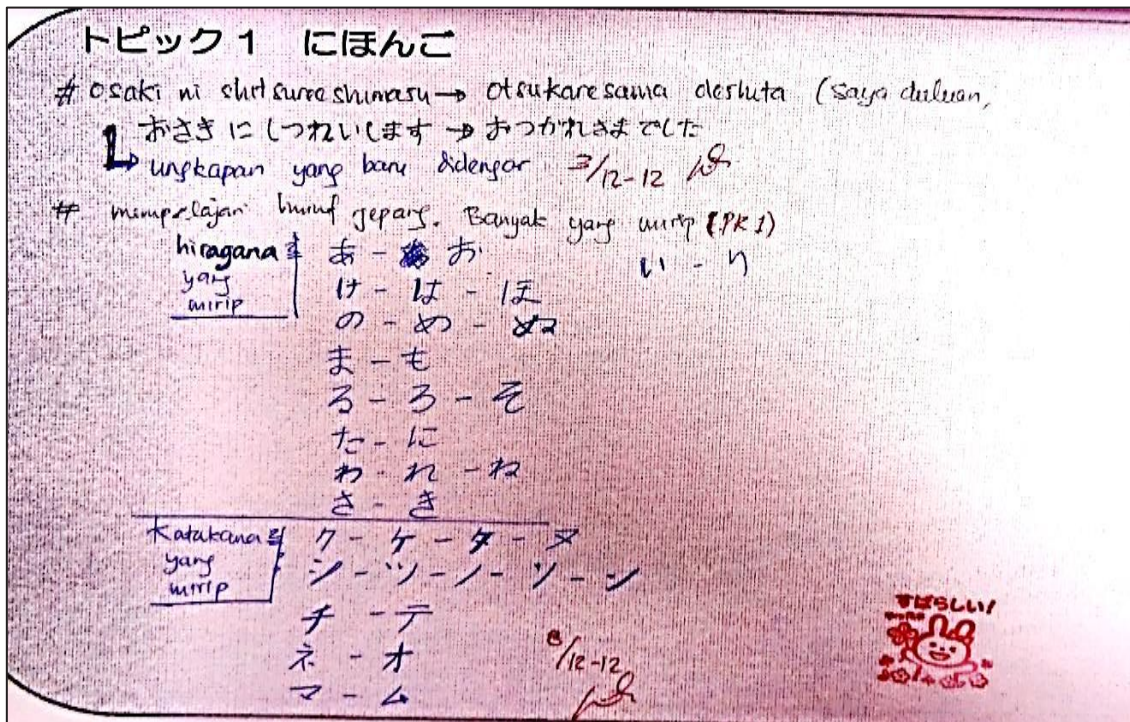 トピック１ にほんご
# osaki ni shitsureishimasu → otsukaresama deshita (saya duluan,
おさきにしつれいします → おつかれさまでした
ungkapan yang baru didengar 3/12-12
# mempelajari huruf jepang. Banyak yang mirip (PK 1)
hiragana yang mirip
あ - お い - り
け - は - ほ
の - め - ぬ
ま - も
る - ろ - そ
た - に
わ - れ - ね
さ - き
Katakana yang mirip
ク - ケ - タ - ヌ
シ - ツ - ノ - ソ - ン
チ - テ
ネ - オ
マ - ム
8/12-12
すばらしい!